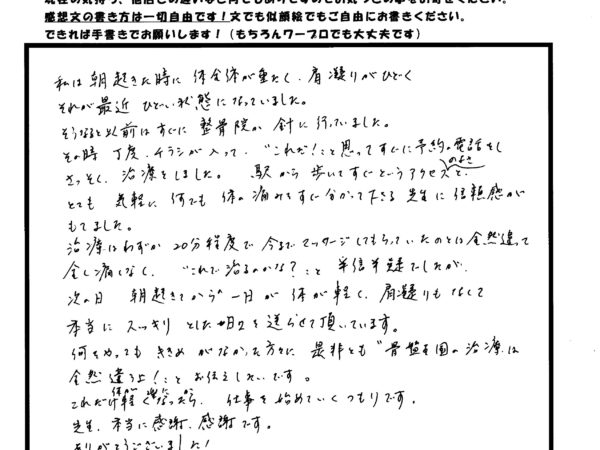 感想文の書き方は一切自由です！文でも似顔絵でもご自由にお書きください。
できれば手書きでお願いします！（もちろんワープロでも大丈夫です）
私は朝起きた時に体全体が重たく、肩凝りがひどく
それが最近ひどい状態になっていました。
そうなると以前はすぐに整骨院か針に行っていました。
その時丁度、チラシが入って、"これだ！"と思ってすぐに予約の電話をし
さっそく、治療をしました。駅から歩いてすぐというアクセスのよさと、
とても気軽に何でも体の痛みをすぐ分かって下さる先生に信頼感が
もてました。
治療はわずか20分程度で今までマッサージしてもらっていたのとは全然違って
全く痛くなく、"これで治るのかな？"と半信半疑でしたが、
次の日朝起きてから一日が体が軽く、肩凝りもなくて
本当にスッキリとした毎日を送らせて頂いています。
何をやってもききめがなかった方々に是非とも"骨盤王国の治療は
全然違うよ！"とお伝えしたいです。
これだけ体が軽く楽になったら、仕事を始めていくつもりです。
先生、本当に感謝、感謝です。
ありがとうございました！